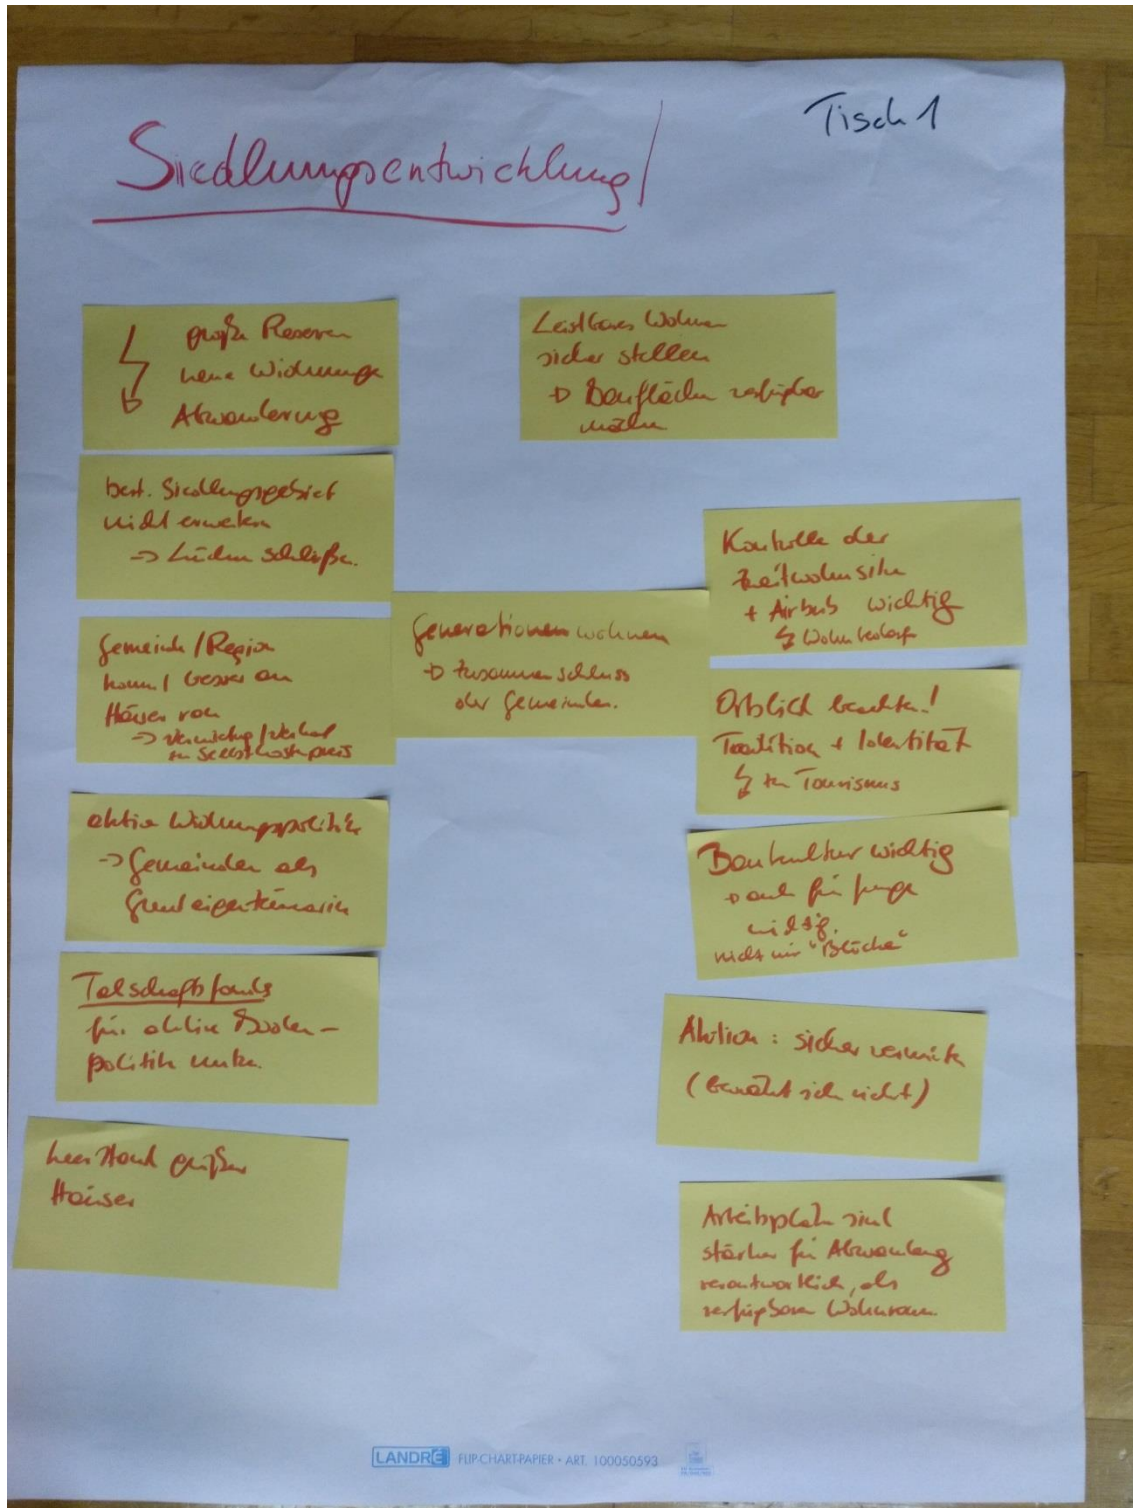 Tisch 1
Siedlungsentwicklung
große Reserven
neue Widmunge
Abwanderung
best. Siedlungsgebiet
nicht erweitern
-> Lücken schließen.
Gemeinde / Region
kommt besser an
Häuser ran
-> Vermietung / Verkauf
zu Selbstkostenpreis
aktive Widmungspolitik
-> Gemeinden als
Grundeigentümerin
Talschaftsfonds
für aktive Boden-
politik nutzen.
Leerstand großer
Häuser
Leistbares Wohnen
sicher stellen
-> Bauflächen verfügbar
machen
Generationenwohnen
-> Zusammenschluss
der Gemeinden.
Kontrolle der
Zweitwohnsitze
+ Airbnb wichtig
Wohnbedarf
Ortsbild beachten!
Tradition + Identität
zu Tourismus
Baukultur wichtig
-> auch für junge
wichtig.
nicht nur "Blöcke"
Aktion: sicher vermieten
(bewährt sich nicht)
Arbeitsplätze sind
stärker für Abwanderung
verantwortlich, als
verfügbarer Wohnraum.
LANDRÉ FLIP-CHART-PAPIER • ART. 100050593